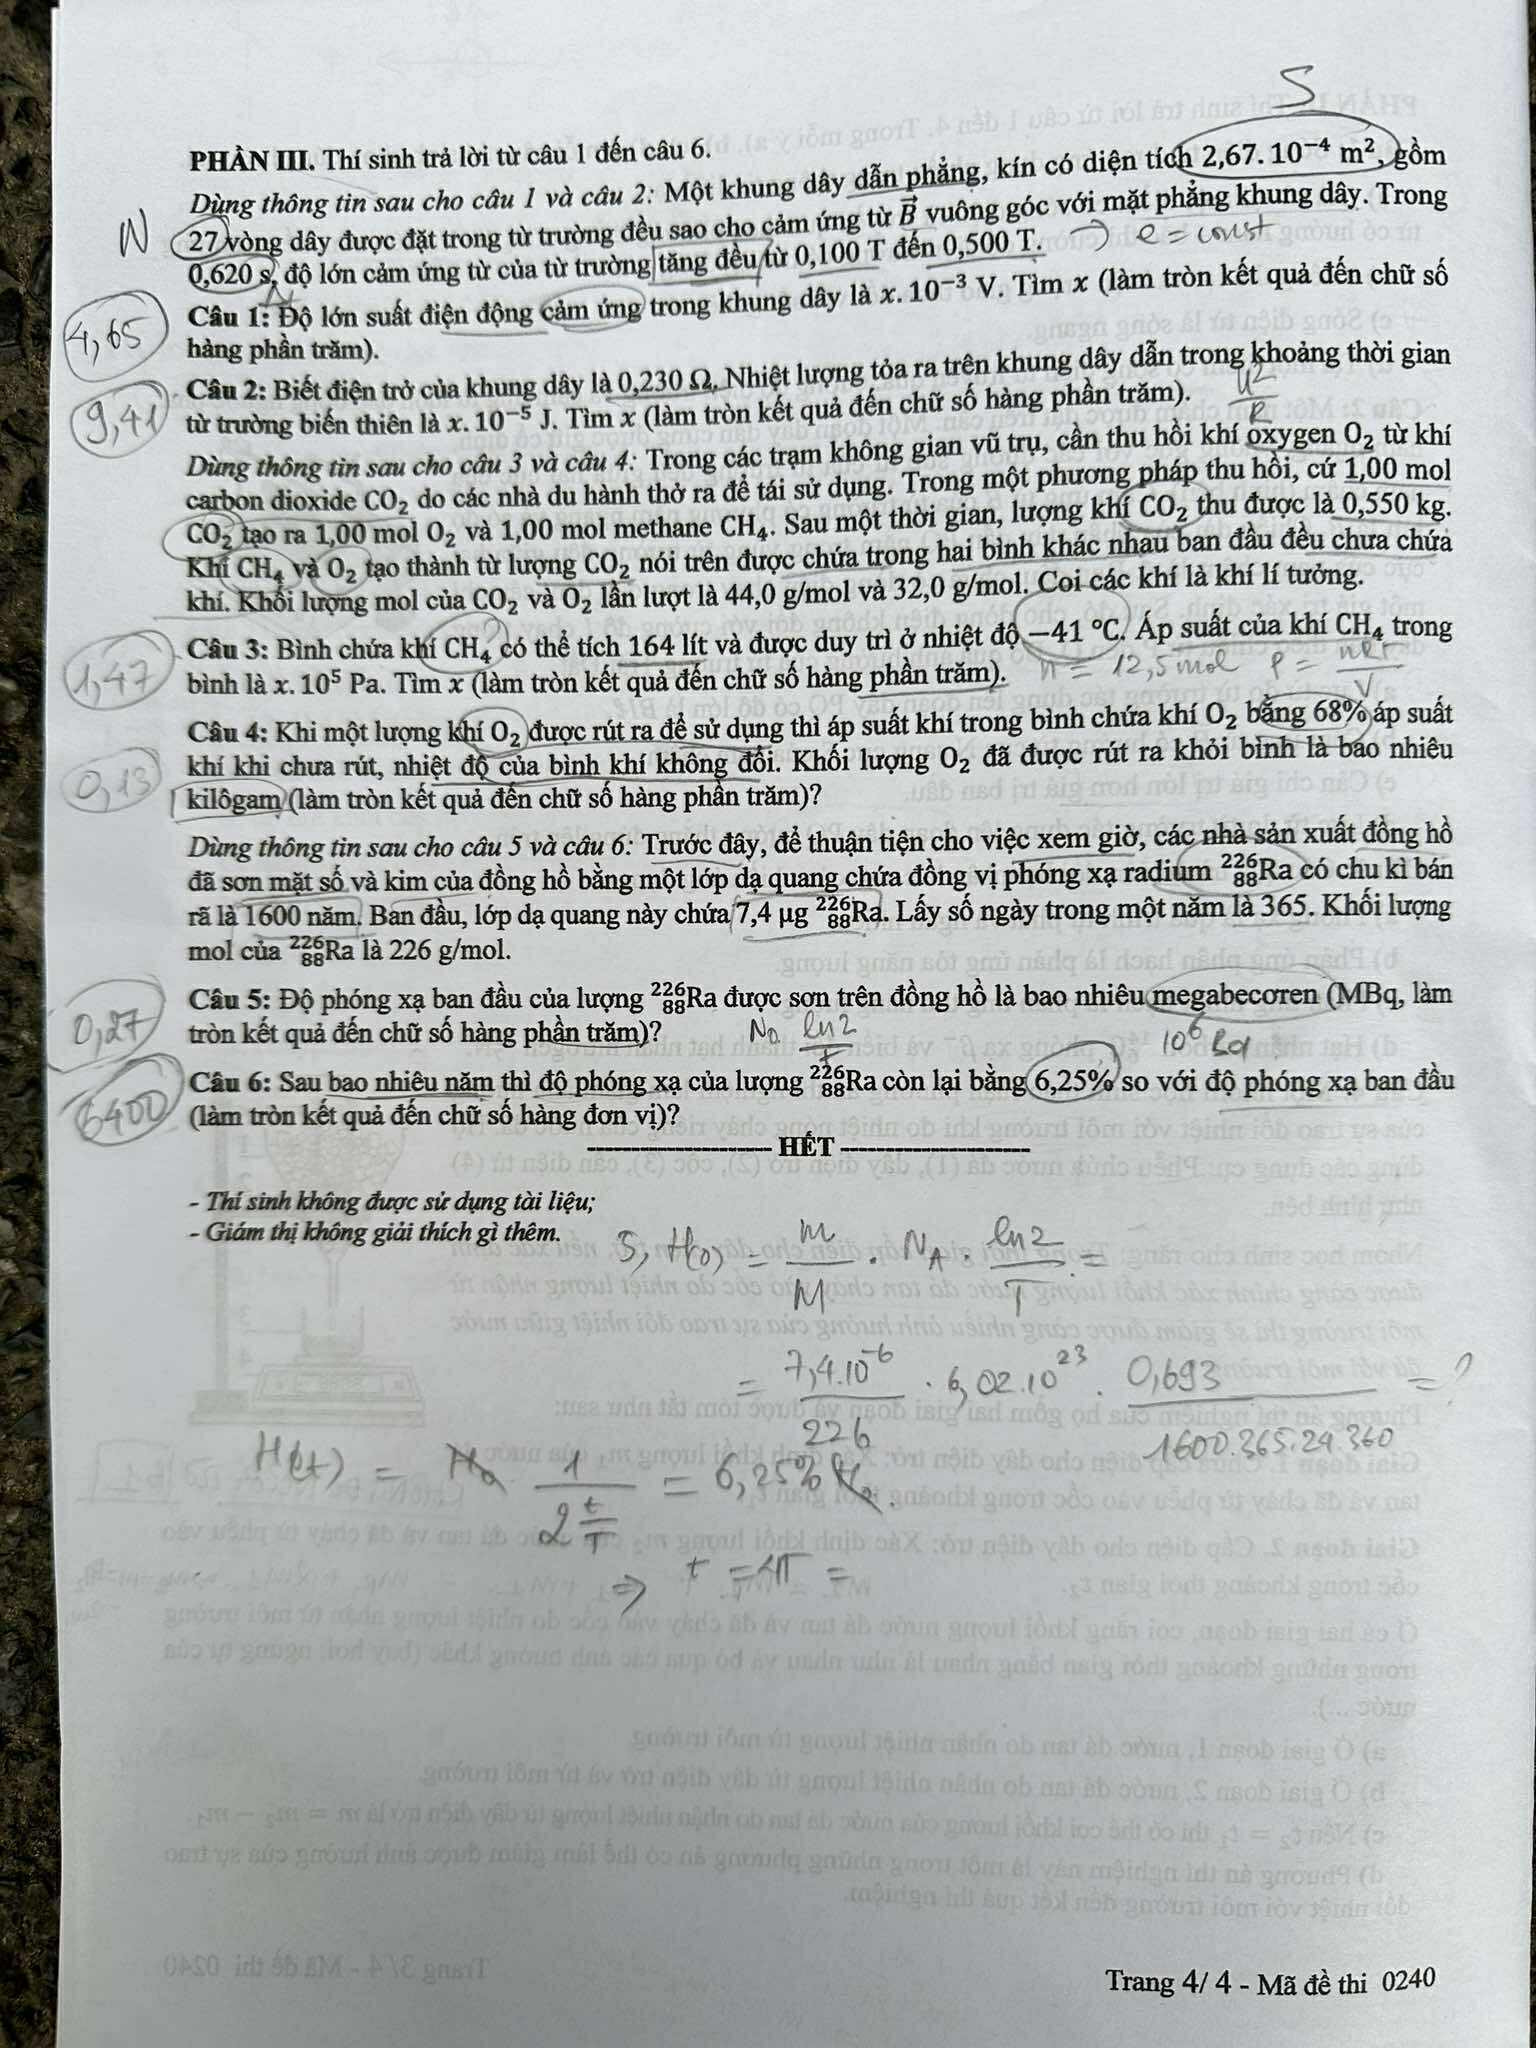 S
PHẦN III. Thí sinh trả lời từ câu 1 đến câu 6.
Dùng thông tin sau cho câu 1 và câu 2: Một khung dây dẫn phẳng, kín có diện tích 2,67. 10⁻⁴ m², gồm
N 27 vòng dây được đặt trong từ trường đều sao cho cảm ứng từ B⃗ vuông góc với mặt phẳng khung dây. Trong
0,620 s, độ lớn cảm ứng từ của từ trường tăng đều từ 0,100 T đến 0,500 T. → e = const
Câu 1: Độ lớn suất điện động cảm ứng trong khung dây là x. 10⁻³ V. Tìm x (làm tròn kết quả đến chữ số
4,65
hàng phần trăm).
Câu 2: Biết điện trở của khung dây là 0,230 Ω. Nhiệt lượng tỏa ra trên khung dây dẫn trong khoảng thời gian
9,41
từ trường biến thiên là x. 10⁻⁵ J. Tìm x (làm tròn kết quả đến chữ số hàng phần trăm). u²/R
Dùng thông tin sau cho câu 3 và câu 4: Trong các trạm không gian vũ trụ, cần thu hồi khí oxygen O₂ từ khí
carbon dioxide CO₂ do các nhà du hành thở ra để tái sử dụng. Trong một phương pháp thu hồi, cứ 1,00 mol
CO₂ tạo ra 1,00 mol O₂ và 1,00 mol methane CH₄. Sau một thời gian, lượng khí CO₂ thu được là 0,550 kg.
Khí CH₄ và O₂ tạo thành từ lượng CO₂ nói trên được chứa trong hai bình khác nhau ban đầu đều chưa chứa
khí. Khối lượng mol của CO₂ và O₂ lần lượt là 44,0 g/mol và 32,0 g/mol. Coi các khí là khí lí tưởng.
Câu 3: Bình chứa khí CH₄ có thể tích 164 lít và được duy trì ở nhiệt độ −41 °C. Áp suất của khí CH₄ trong
1,47
bình là x. 10⁵ Pa. Tìm x (làm tròn kết quả đến chữ số hàng phần trăm). n = 12,5 mol P = nRT/V
Câu 4: Khi một lượng khí O₂ được rút ra để sử dụng thì áp suất khí trong bình chứa khí O₂ bằng 68% áp suất
khí khi chưa rút, nhiệt độ của bình khí không đổi. Khối lượng O₂ đã được rút ra khỏi bình là bao nhiêu
0,13
kilôgam (làm tròn kết quả đến chữ số hàng phần trăm)?
Dùng thông tin sau cho câu 5 và câu 6: Trước đây, để thuận tiện cho việc xem giờ, các nhà sản xuất đồng hồ
đã sơn mặt số và kim của đồng hồ bằng một lớp dạ quang chứa đồng vị phóng xạ radium ²²⁶₈₈Ra có chu kì bán
rã là 1600 năm. Ban đầu, lớp dạ quang này chứa 7,4 μg ²²⁶₈₈Ra. Lấy số ngày trong một năm là 365. Khối lượng
mol của ²²⁶₈₈Ra là 226 g/mol.
Câu 5: Độ phóng xạ ban đầu của lượng ²²⁶₈₈Ra được sơn trên đồng hồ là bao nhiêu megabecơren (MBq, làm
0,27
tròn kết quả đến chữ số hàng phần trăm)? N₀ ln2/T 10⁶ Bq
Câu 6: Sau bao nhiêu năm thì độ phóng xạ của lượng ²²⁶₈₈Ra còn lại bằng 6,25% so với độ phóng xạ ban đầu
6400
(làm tròn kết quả đến chữ số hàng đơn vị)?
HẾT
- Thí sinh không được sử dụng tài liệu;
- Giám thị không giải thích gì thêm.
5, H(0) = m/M . N_A . ln2/T =
= 7,4.10⁻⁶/226 . 6,02.10²³ . 0,693/1600.365.24.360 = ?
H(t) = H₀ 1/2^(t/T) = 6,25% H₀.
⇒ t = 4T =
Trang 4/ 4 - Mã đề thi 0240